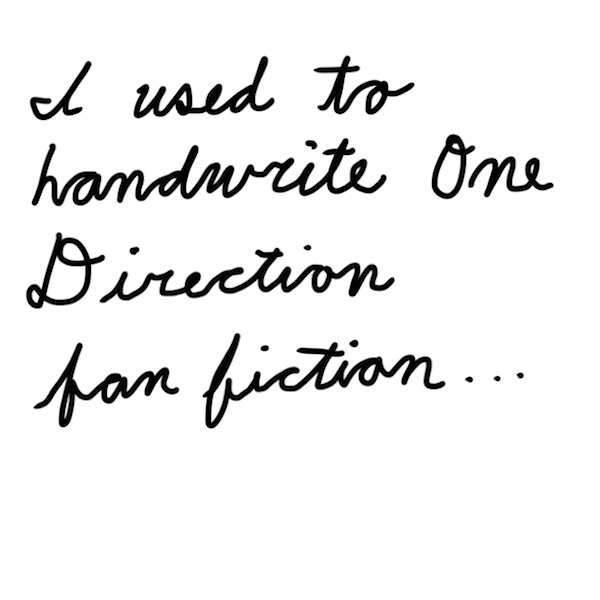 I used to
handwrite One
Direction
fan fiction...